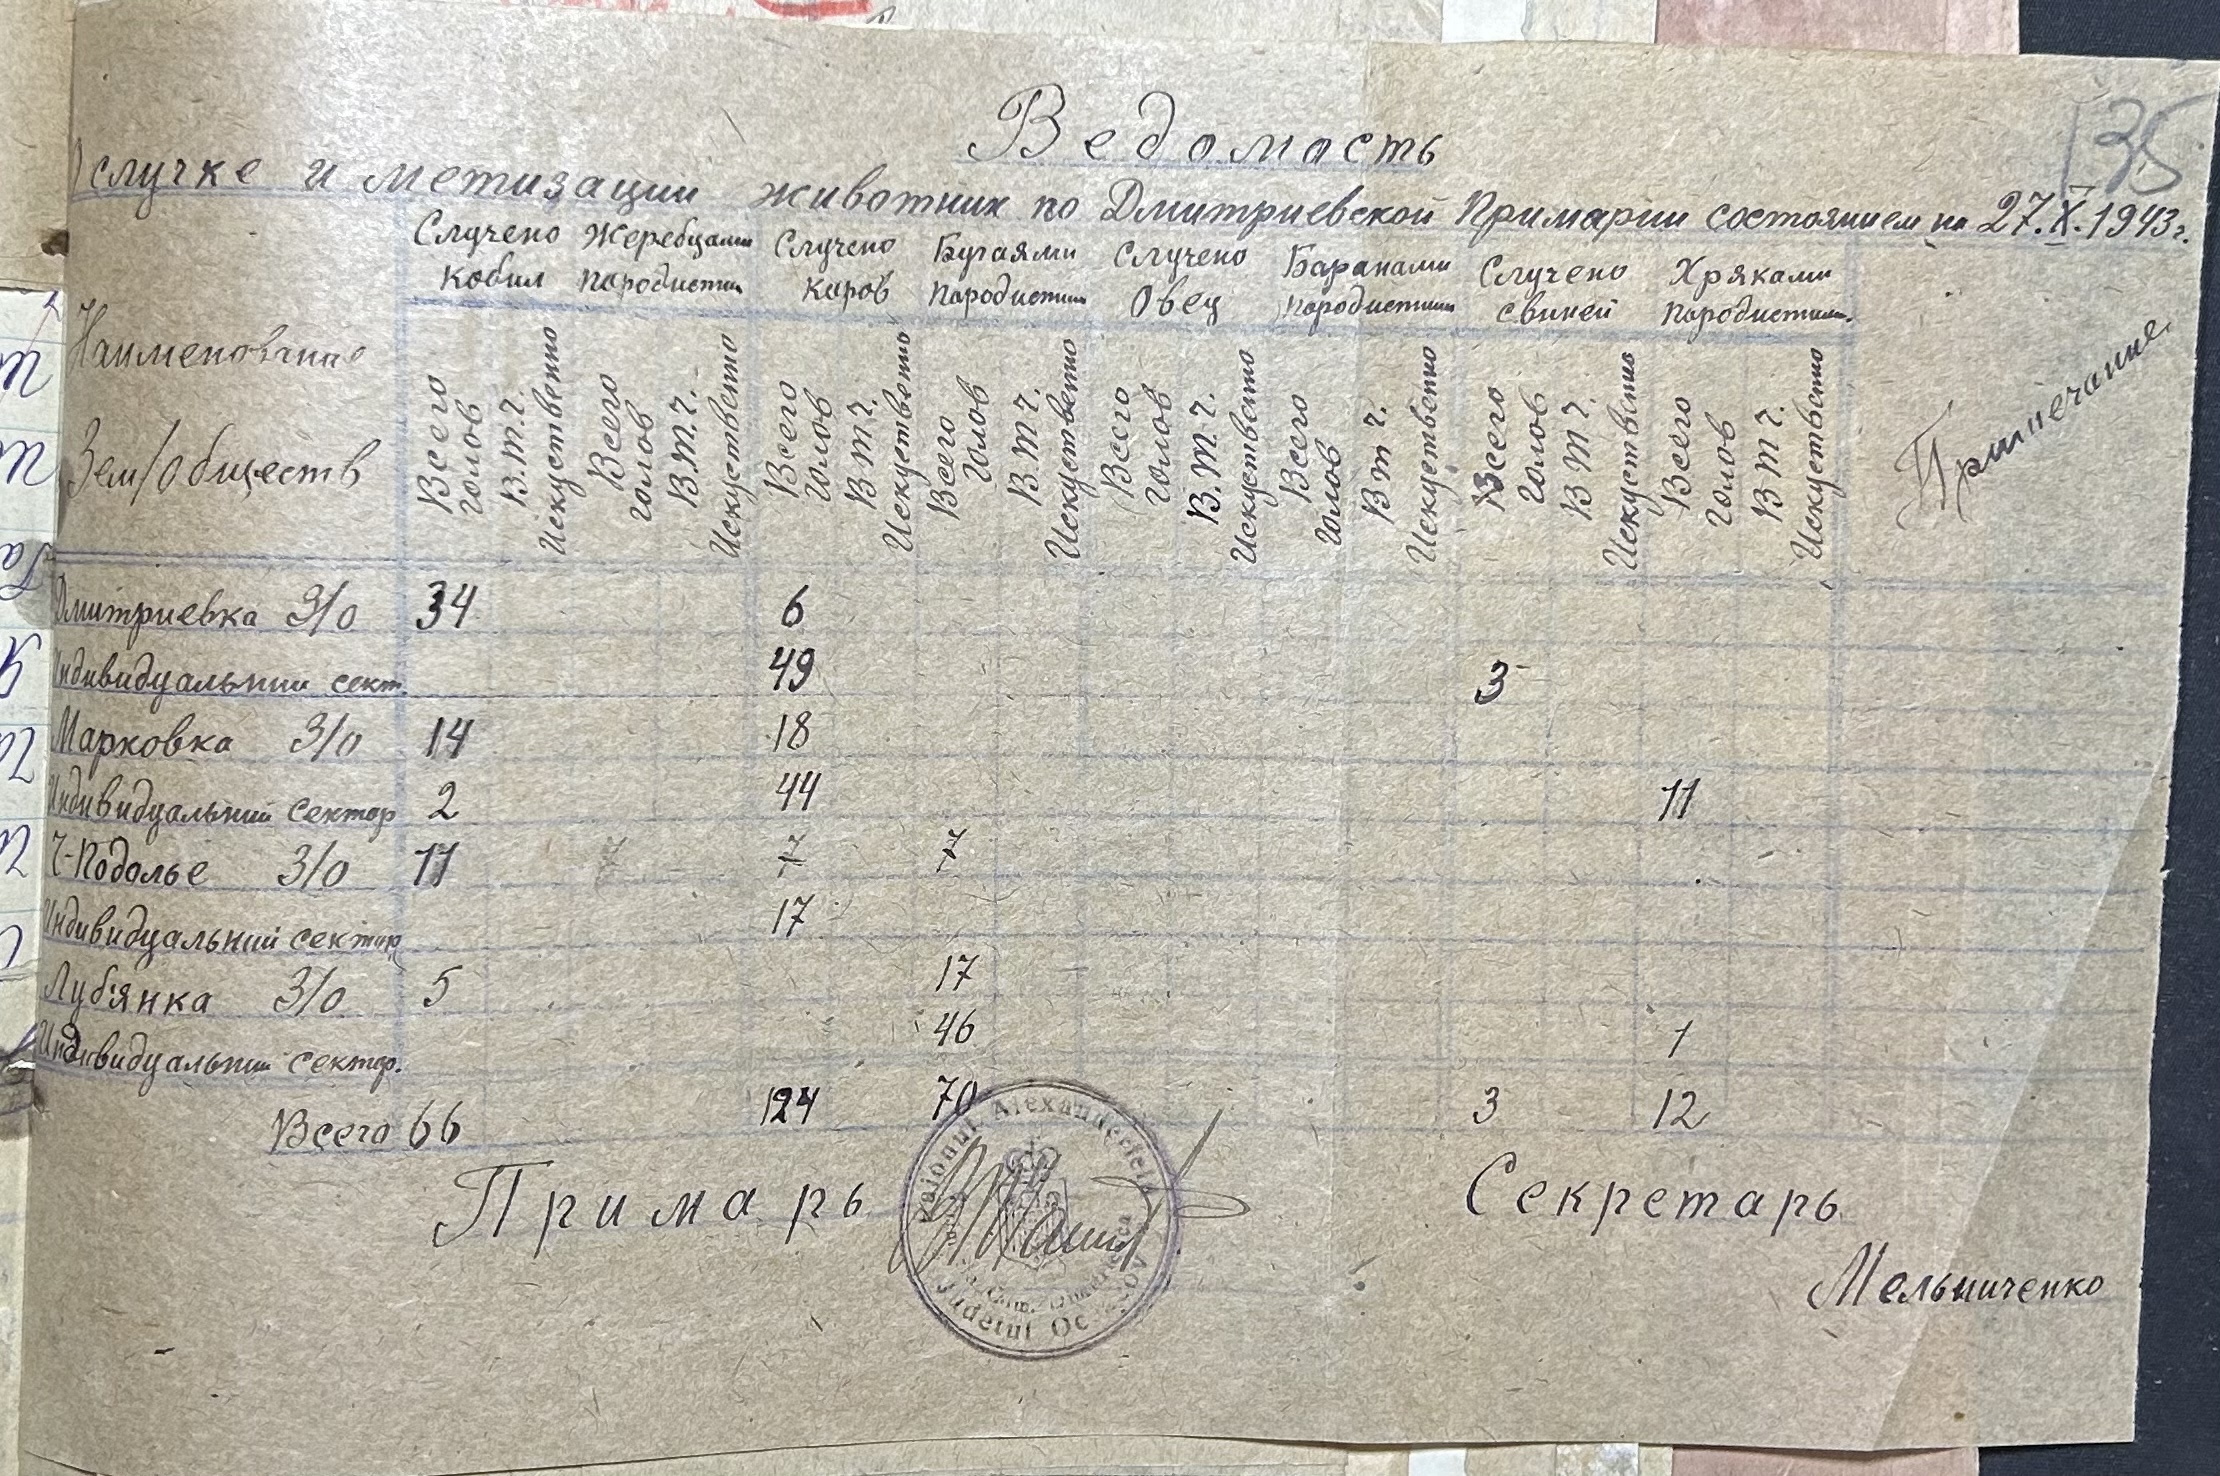 135
Ведомость
О случке и метизации животних по Дмитриевской Примарии состоянием на 27.X.1943г.
Наименование Зем/обществ
Случено кобил
Жеребцами породистими
Случено коров
Бугаями породистими
Случено Овец
Баранами породистими
Случено свиней
Хряками породистими
Примечание
Всего голов В.т.ч. Искуственно Всего голов В.т.ч. Искуственно Всего голов В т ч. Искуственно Всего голов В.т.ч. Искуственно Всего голов В.т.ч. Искуственно Всего голов В т ч. Искуственно Всего голов В т ч. Искуственно Всего голов В т ч. Искуственно
Дмитриевка З/о 34 6
Индивидуальнии сект. 49 3
Марковка З/о 14 18
Индивидуальний сектор 2 44 11
Ч-Подолье З/о 11 7 7
Индивидуальний сектор 17
Луб'янка З/о 5 17
Индивидуальнии сектор. 46 1
Всего 66 124 70 3 12
Примарь Секретарь
Мельниченко
Raionul Alexandrfeld
Judetul